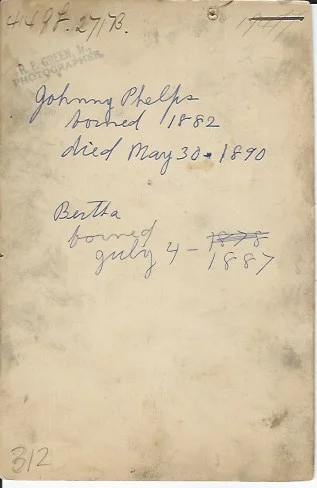 4498.27173.
R. E. GREEN,
PHOTOGRAPHER.
Johnny Phelps
borned 1882
died May 30 - 1890
Bertha
borned
guly 4 - 1878
1887
312